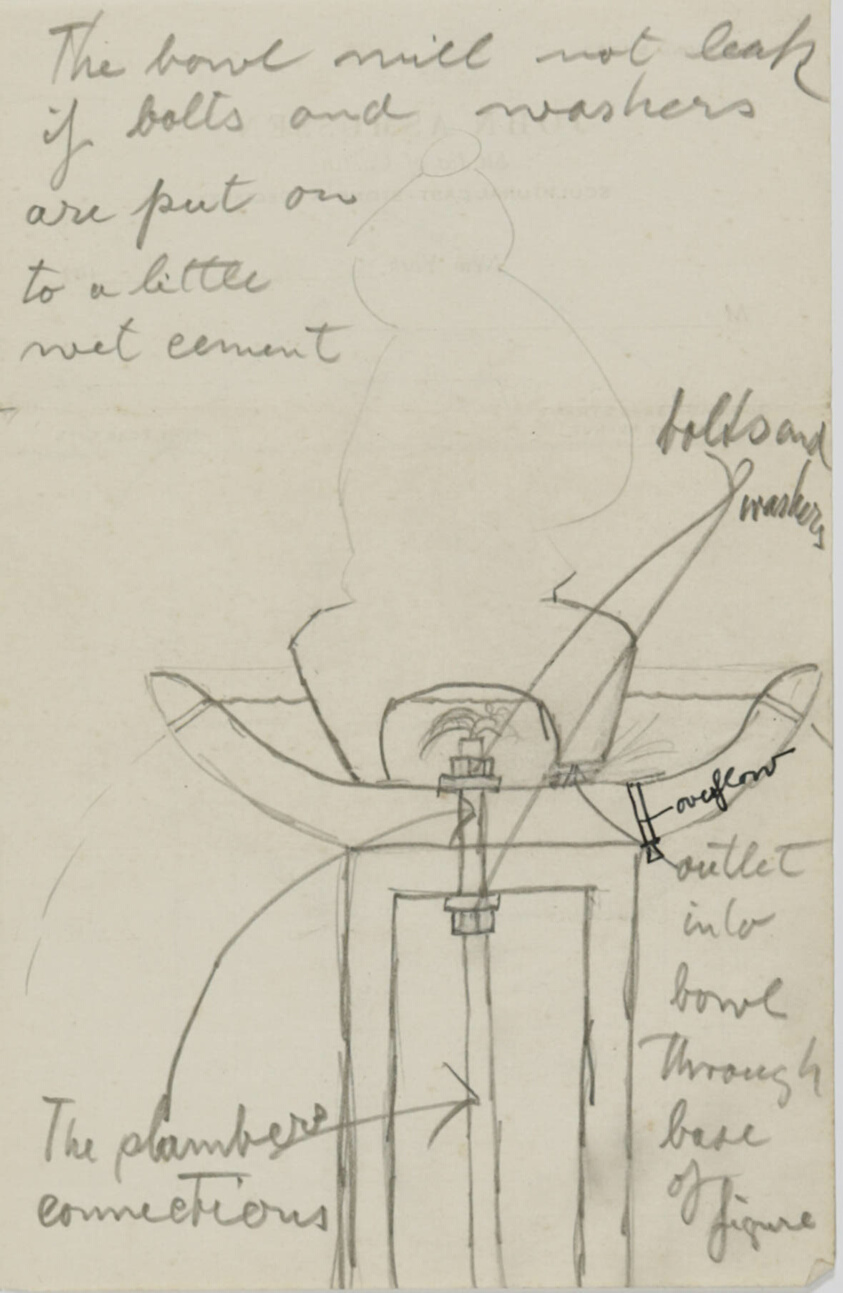 The bowl will not leak
if bolts and washers
are put on
to a little
wet cement
bolts and
washers
overflow
outlet
into
bowl
through
base
of
figure
The plumbers
connections